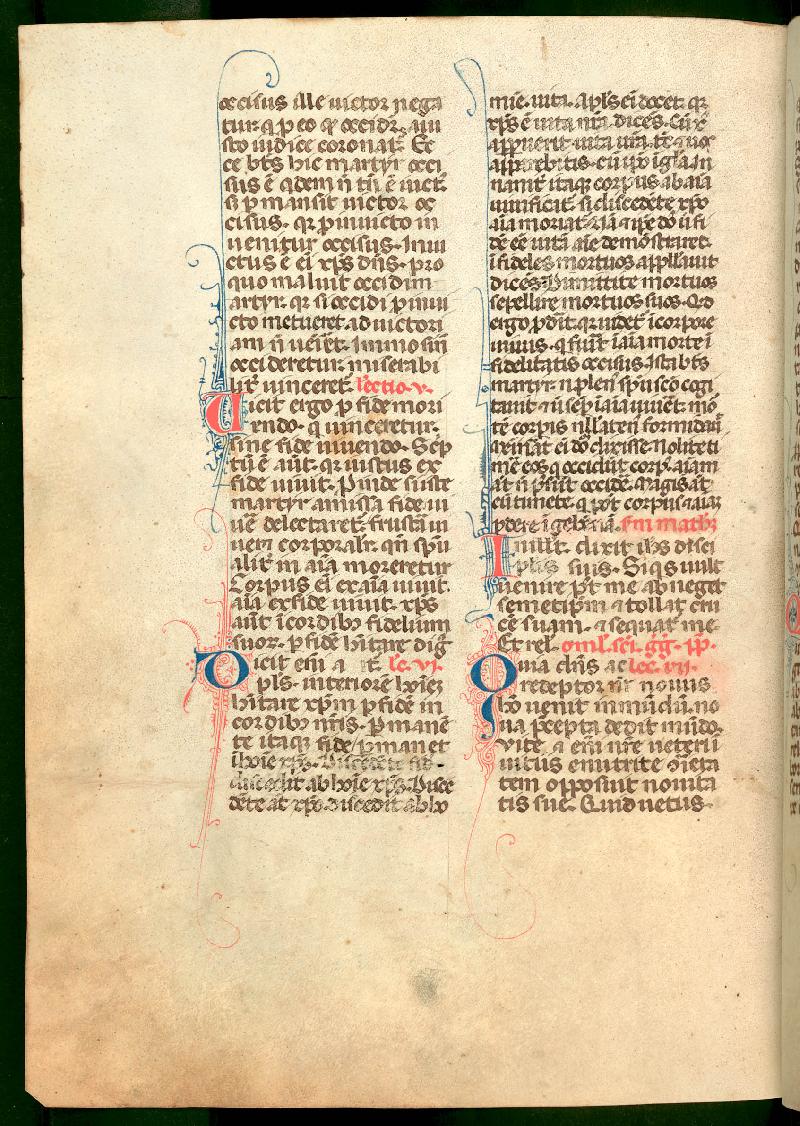 occisus ille uictor nega
tur q̄ p eo q̄ occidr̄. aiu
sto iudice coronat̄. Ec
ce bt̄s hic martyr occi
sus ē q̄dem n̄ tn̄ ē uict̄
s; pmansit uictor oc
cisus. qr̄ p inuicto in
uenitur occisus. Inui
ctus ē ei xp̄s dn̄s. pro
quo maluit occidi m
artyr. qr̄ si occidi p inui
cto metueret. ad uictori
am n̄ ueīret. Immo sin̄
occideretur. miserabi
lit̄ uinceret. lectio. v.
Uicit ergo p fide mori
endo. q uinceretur.
sine fide uiuendo. Sc̄p
tū ē aūt. qr̄ iustus ex
fide uiuit. Pinde iuste
martyr amissa fide ui
ue delectaret̄. frusta ui
ueret corporalr̄. qn̄ sp̄u
alit̄ in aīa moreretur
Corpus ei exaīa uiuit.
aīa ex fide uiuit. xp̄s
aūt ī cordibꝰ fidelium
suoꝝ. p fidē hitare dig̅
Dicit enī a t̄. lc. vi.
pls. interiorē hoīez
hitare xp̄m p fidē in
cordibꝰ nr̄is. Pmanē
te itaqꝫ fide pmanet
ī hoīe xp̄s. Discedēte fid
discedit ab hoīe xp̄s. Disce
dēte at xp̄o. discedit ab ho
mīe. uita. Apl̄s ei docet. qr̄
xp̄s ē uita nr̄a. dicēs. Cū xp̄
apparuerit uita ur̄a. tc̄ ⁊ uos
apparebitis. cū ip̄o ī gl̄a. In
namt̄ itaqꝫ corpus ab aīa
uiuificat̄. si discedēte xp̄o
aīa moriat̄. Nā ⁊ ip̄e do n̄i fi
dē eē uitā aīe demōstraret.
īfideles mortuos appllauit
dicēs. Dimittite mortuos
sepellire mortuos suos. Qd̄
ergo pdit. qr̄ uidet̄ ī corpore
uiuus. q̄ fiūt ī aīa morte ī
fidelitatis occisus. Ista bt̄s
martyr. n̄ pleni sp̄u sc̄o cogi
tauit. ⁊ ut sēp ī aīa uiueret. mō
tē corpis nullaten̄ formidauit
axinsat̄ ei dō dixisse. Nolite ti
mē eos q̄ occidūt corp̄. aīam
at̄ n̄ pn̄t occidē. Magis at̄
eū timete. q̄ pot̄ corpus ⁊ aīaꝫ
pdere ī gehēnā. Scd̄m math̄z
In illt̄. dixit ih̄s disci
plis suis. Siqs uult
uenire pt̄ me abneget
semetip̄m ⁊ tollat̄ cru
cē suam. ⁊ sequat̄ me
Et rel̄. omī. sci. gg. pp.
Quia dn̄s ac lec. vii.
redeptor nr̄ nouus
hō uenit in mūdū. no
ua pcepta dedit mūdo.
Uite ⁊ enī nr̄e ueteri
in uitiis enutrite ꝯtrarie
tem opposuit nouita
tis sue. Quid uetus.